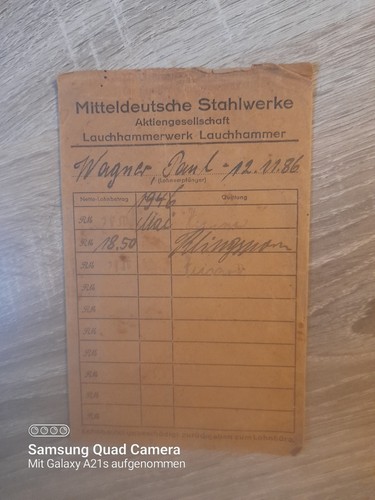 Mitteldeutsche Stahlwerke
Aktiengesellschaft
Lauchhammerwerk Lauchhammer
Wagner, Paul - 12.11.86
(Lohnempfänger)
Netto-Lohnbetrag 1946 Quittung
RM Mai
RM 18.50 Klingsporn
RM
RM
RM
RM
RM
RM
RM
RM
Samsung Quad Camera
Mit Galaxy A21s aufgenommen